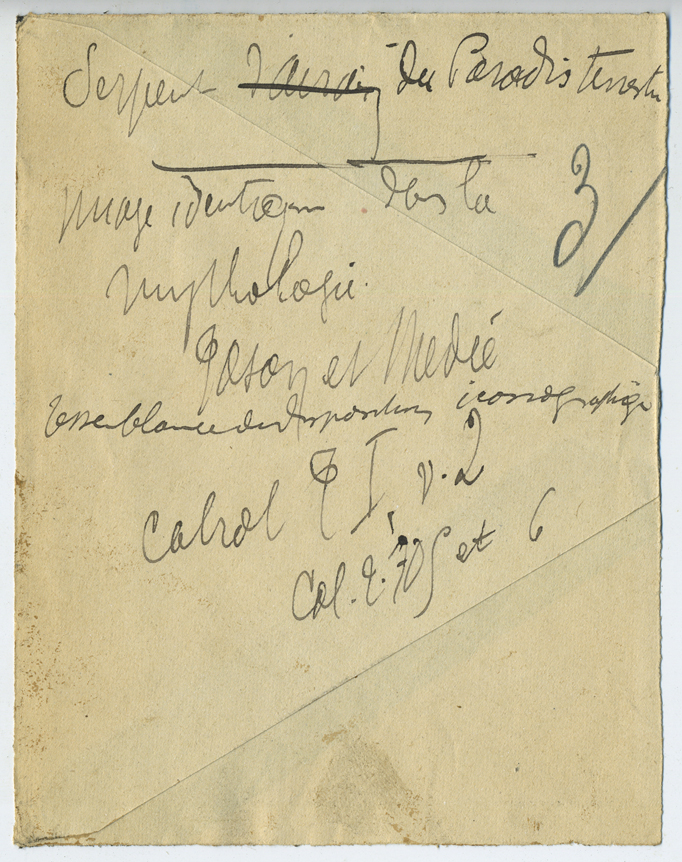 Serpent d'airain du Paradis terrestre
Image identique dans la
mythologie.
Jason et Médée
ressemblance des dispositions iconographiques
3/
Cabrol T I, v. 2
Col. 2.705 et 6